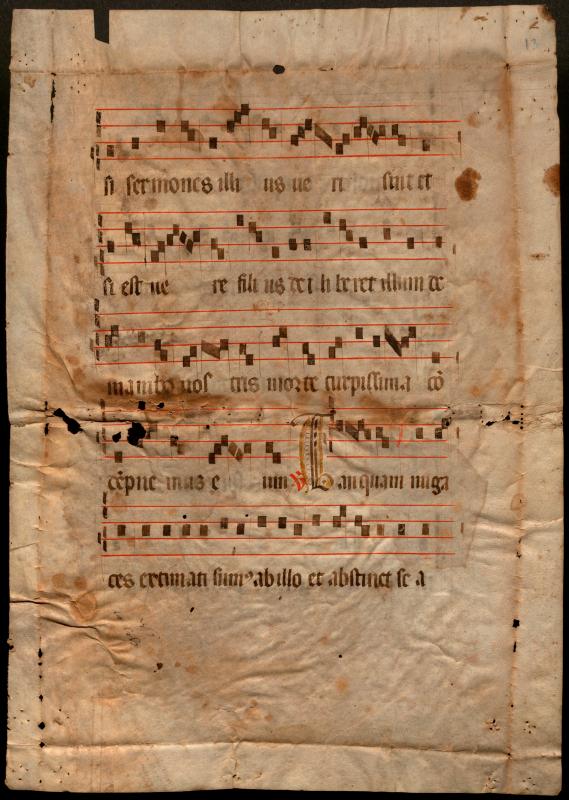 13
si sermones illi us ue ri sint et
si est ue re fili us dei li beret illum de
manibus nos tris morte turpissima cō
dēpne mus e um ℣ Tanquam nuga
ces extimati sumꝰ ab illo et abstinet se a